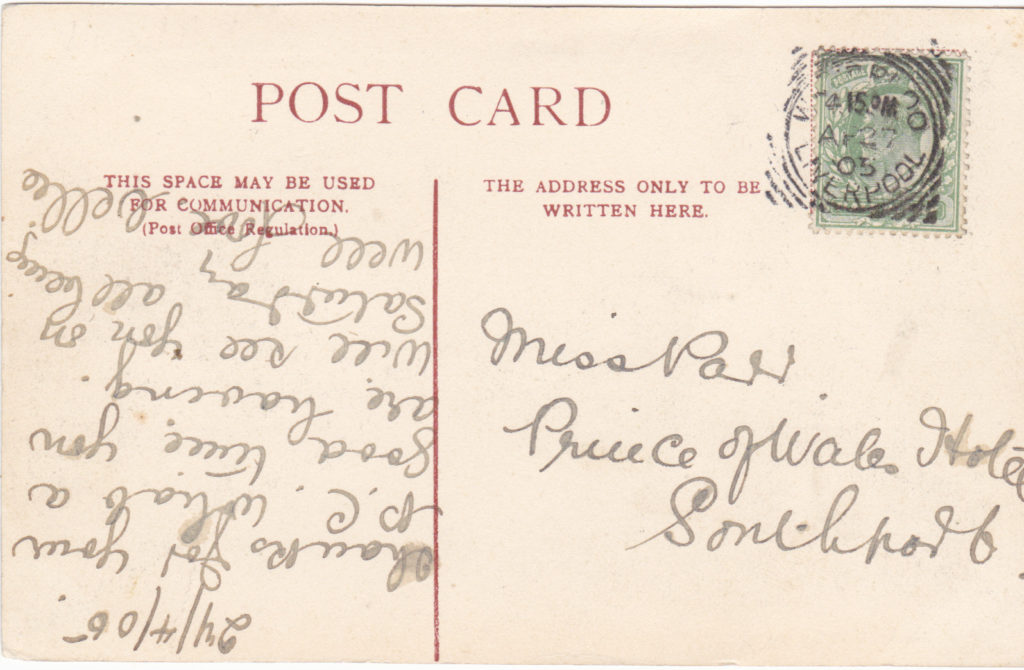 POST CARD
THIS SPACE MAY BE USED
FOR COMMUNICATION.
(Post Office Regulation.)
THE ADDRESS ONLY TO BE
WRITTEN HERE.
4.15 PM
AP 27
05
LIVERPOOL
Miss Parr
Prince of Wales Hotel
Southport
27/4/05
Thanks for your
P.C. What a
good time you
are having.
Will see you on
Saturday all being
well love Nellie